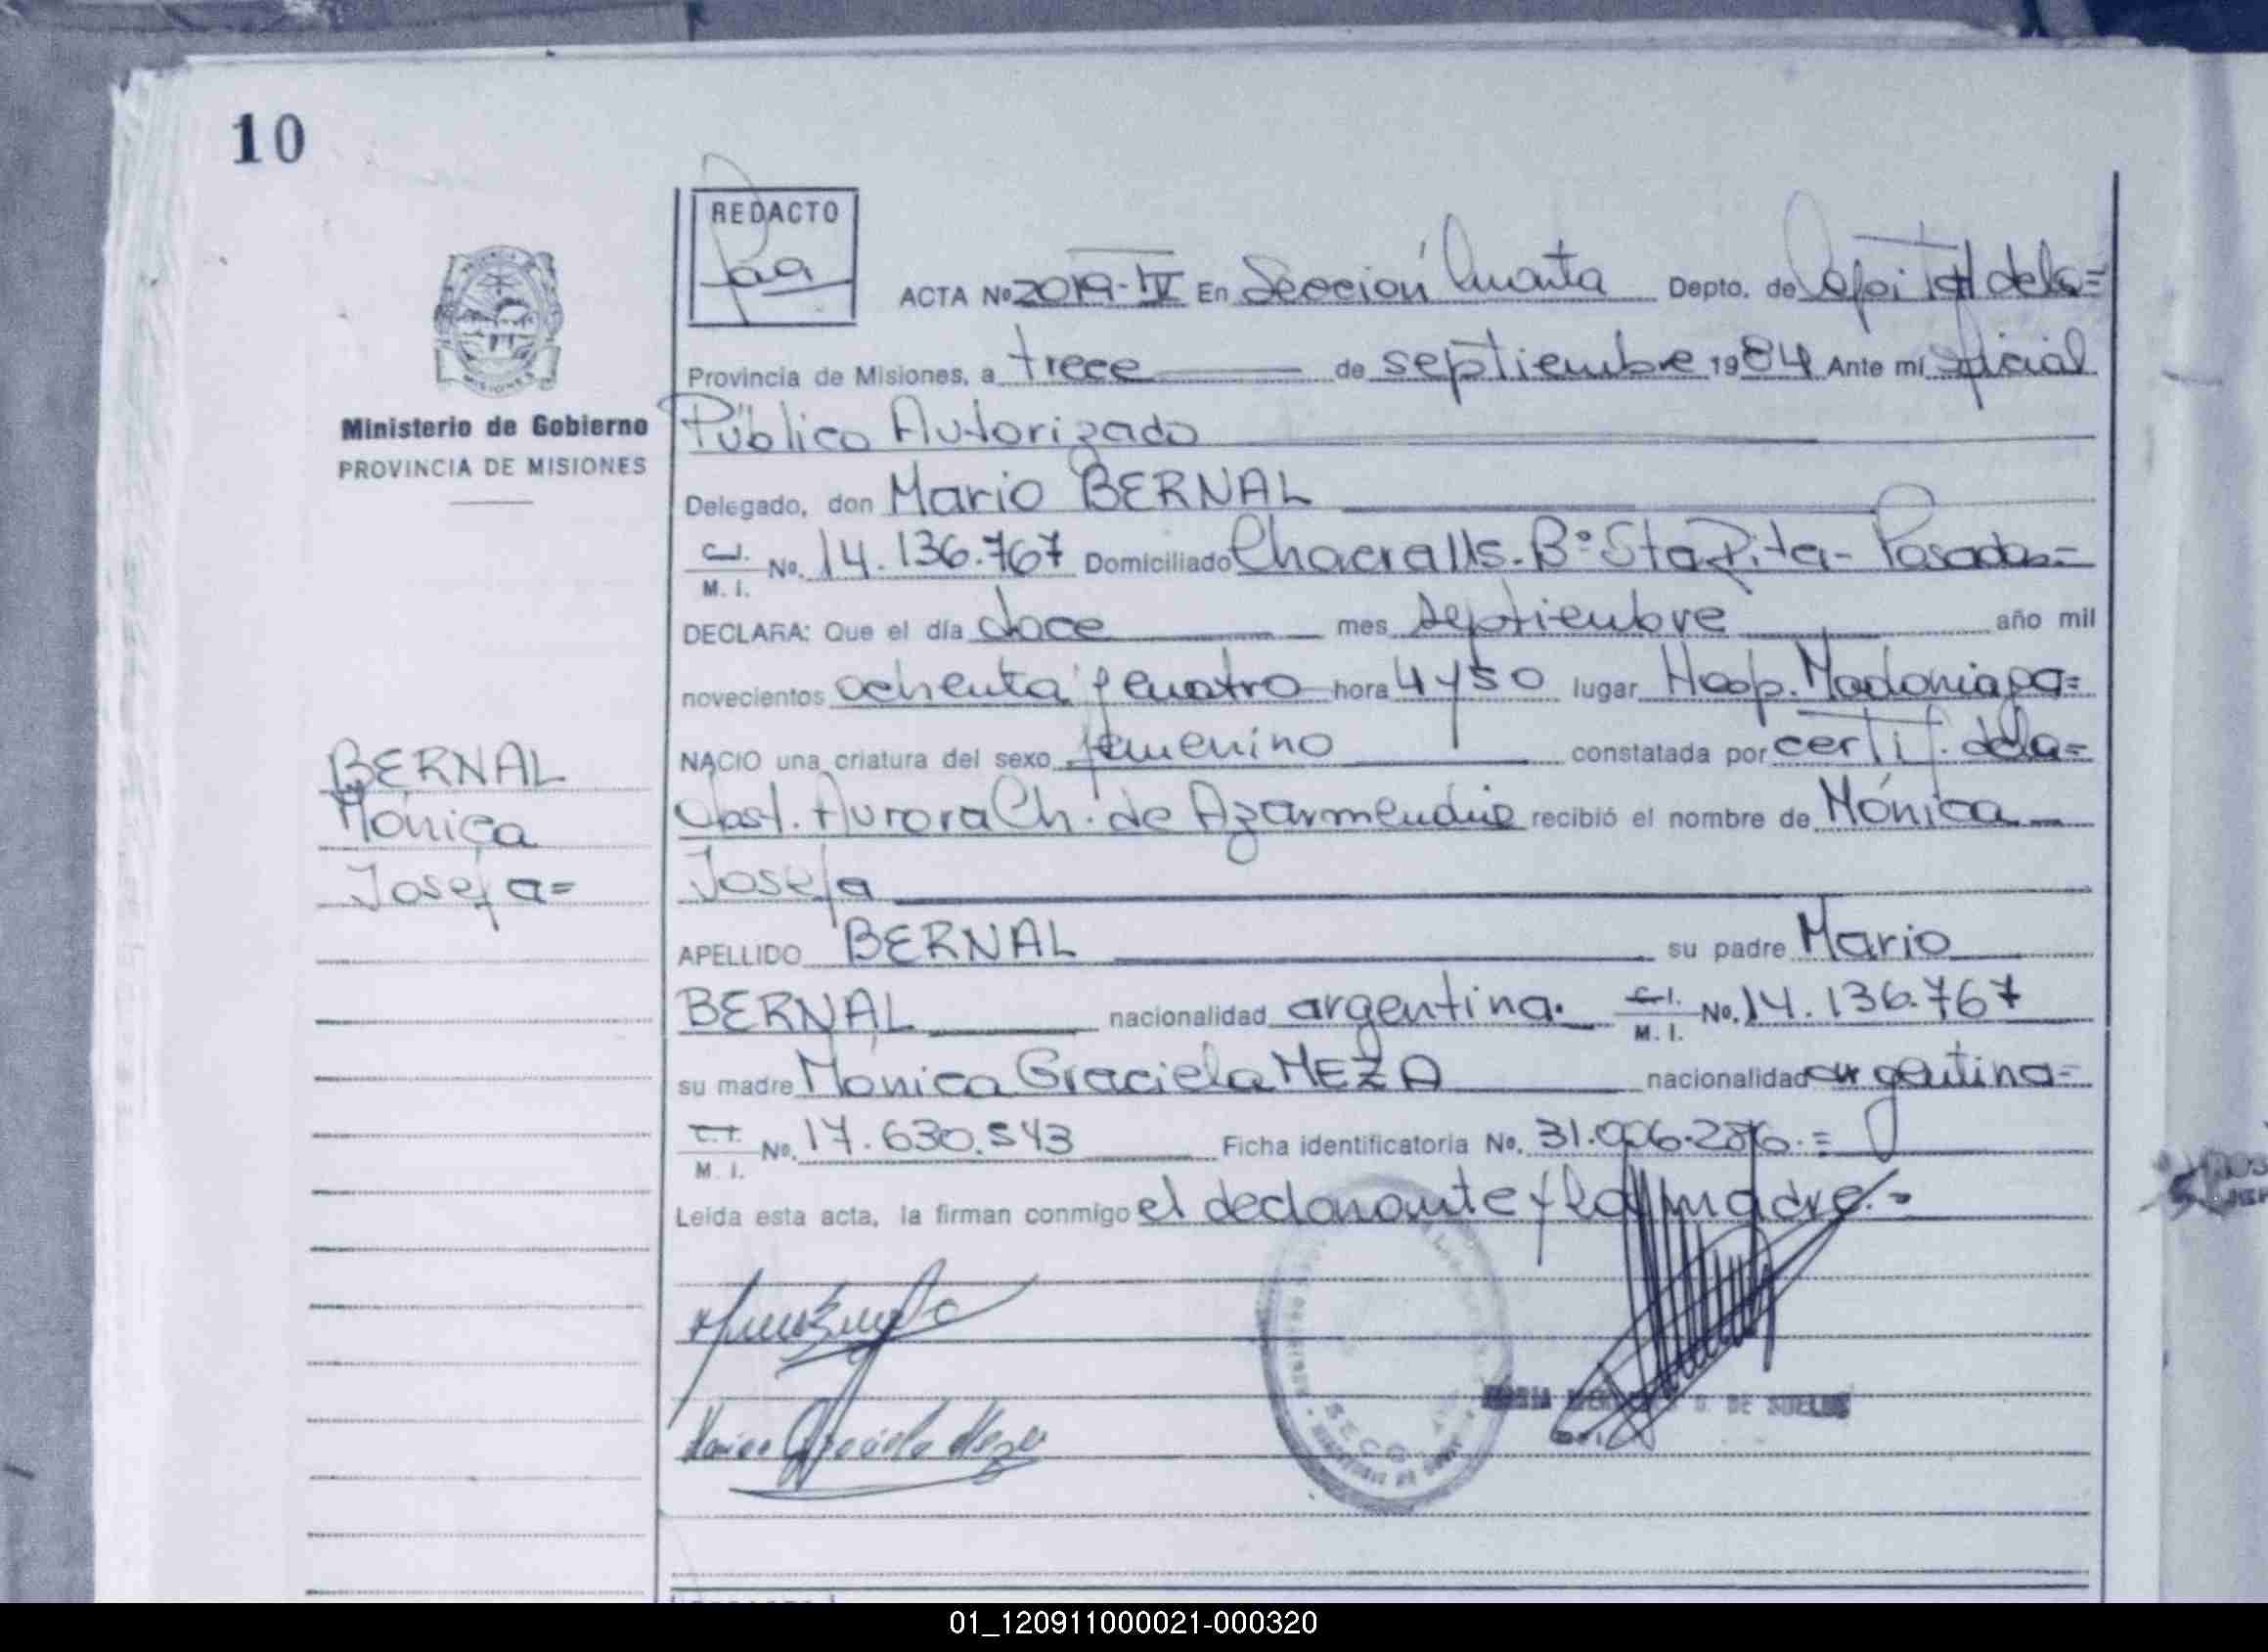 10
REDACTO
ACTA No 2019-IV En Sección Cuarta Depto. de Capital de la=
Provincia de Misiones, a trece de septiembre 1984 Ante mí Oficial
Público Autorizado
Ministerio de Gobierno
PROVINCIA DE MISIONES
MISIONES
Delegado, don Mario BERNAL
C.I. M. I. No. 14.136.767 Domiciliado Chacra 115-Bº Sta Rita- Posadas=
DECLARA: Que el día doce mes septiembre año mil
novecientos ochenta y cuatro hora 4 y 50 lugar Hosp. Madariaga=
NACIO una criatura del sexo femenino constatada por certif. de la=
Obst. Aurora Ch. de Azarmendia recibió el nombre de Mónica
Josefa
BERNAL
Mónica
Josefa=
APELLIDO BERNAL su padre Mario
BERNAL nacionalidad argentina. C.I. M. I. No. 14.136.767
su madre Mónica Graciela MEZA nacionalidad argentina=
C.I. M. I. No. 17.630.543 Ficha identificatoria No. 31.006.286.=
Leída esta acta, la firman conmigo el declarante y la madre.=
Monica Graciela Meza
D. DE SUELDS
01_120911000021-000320